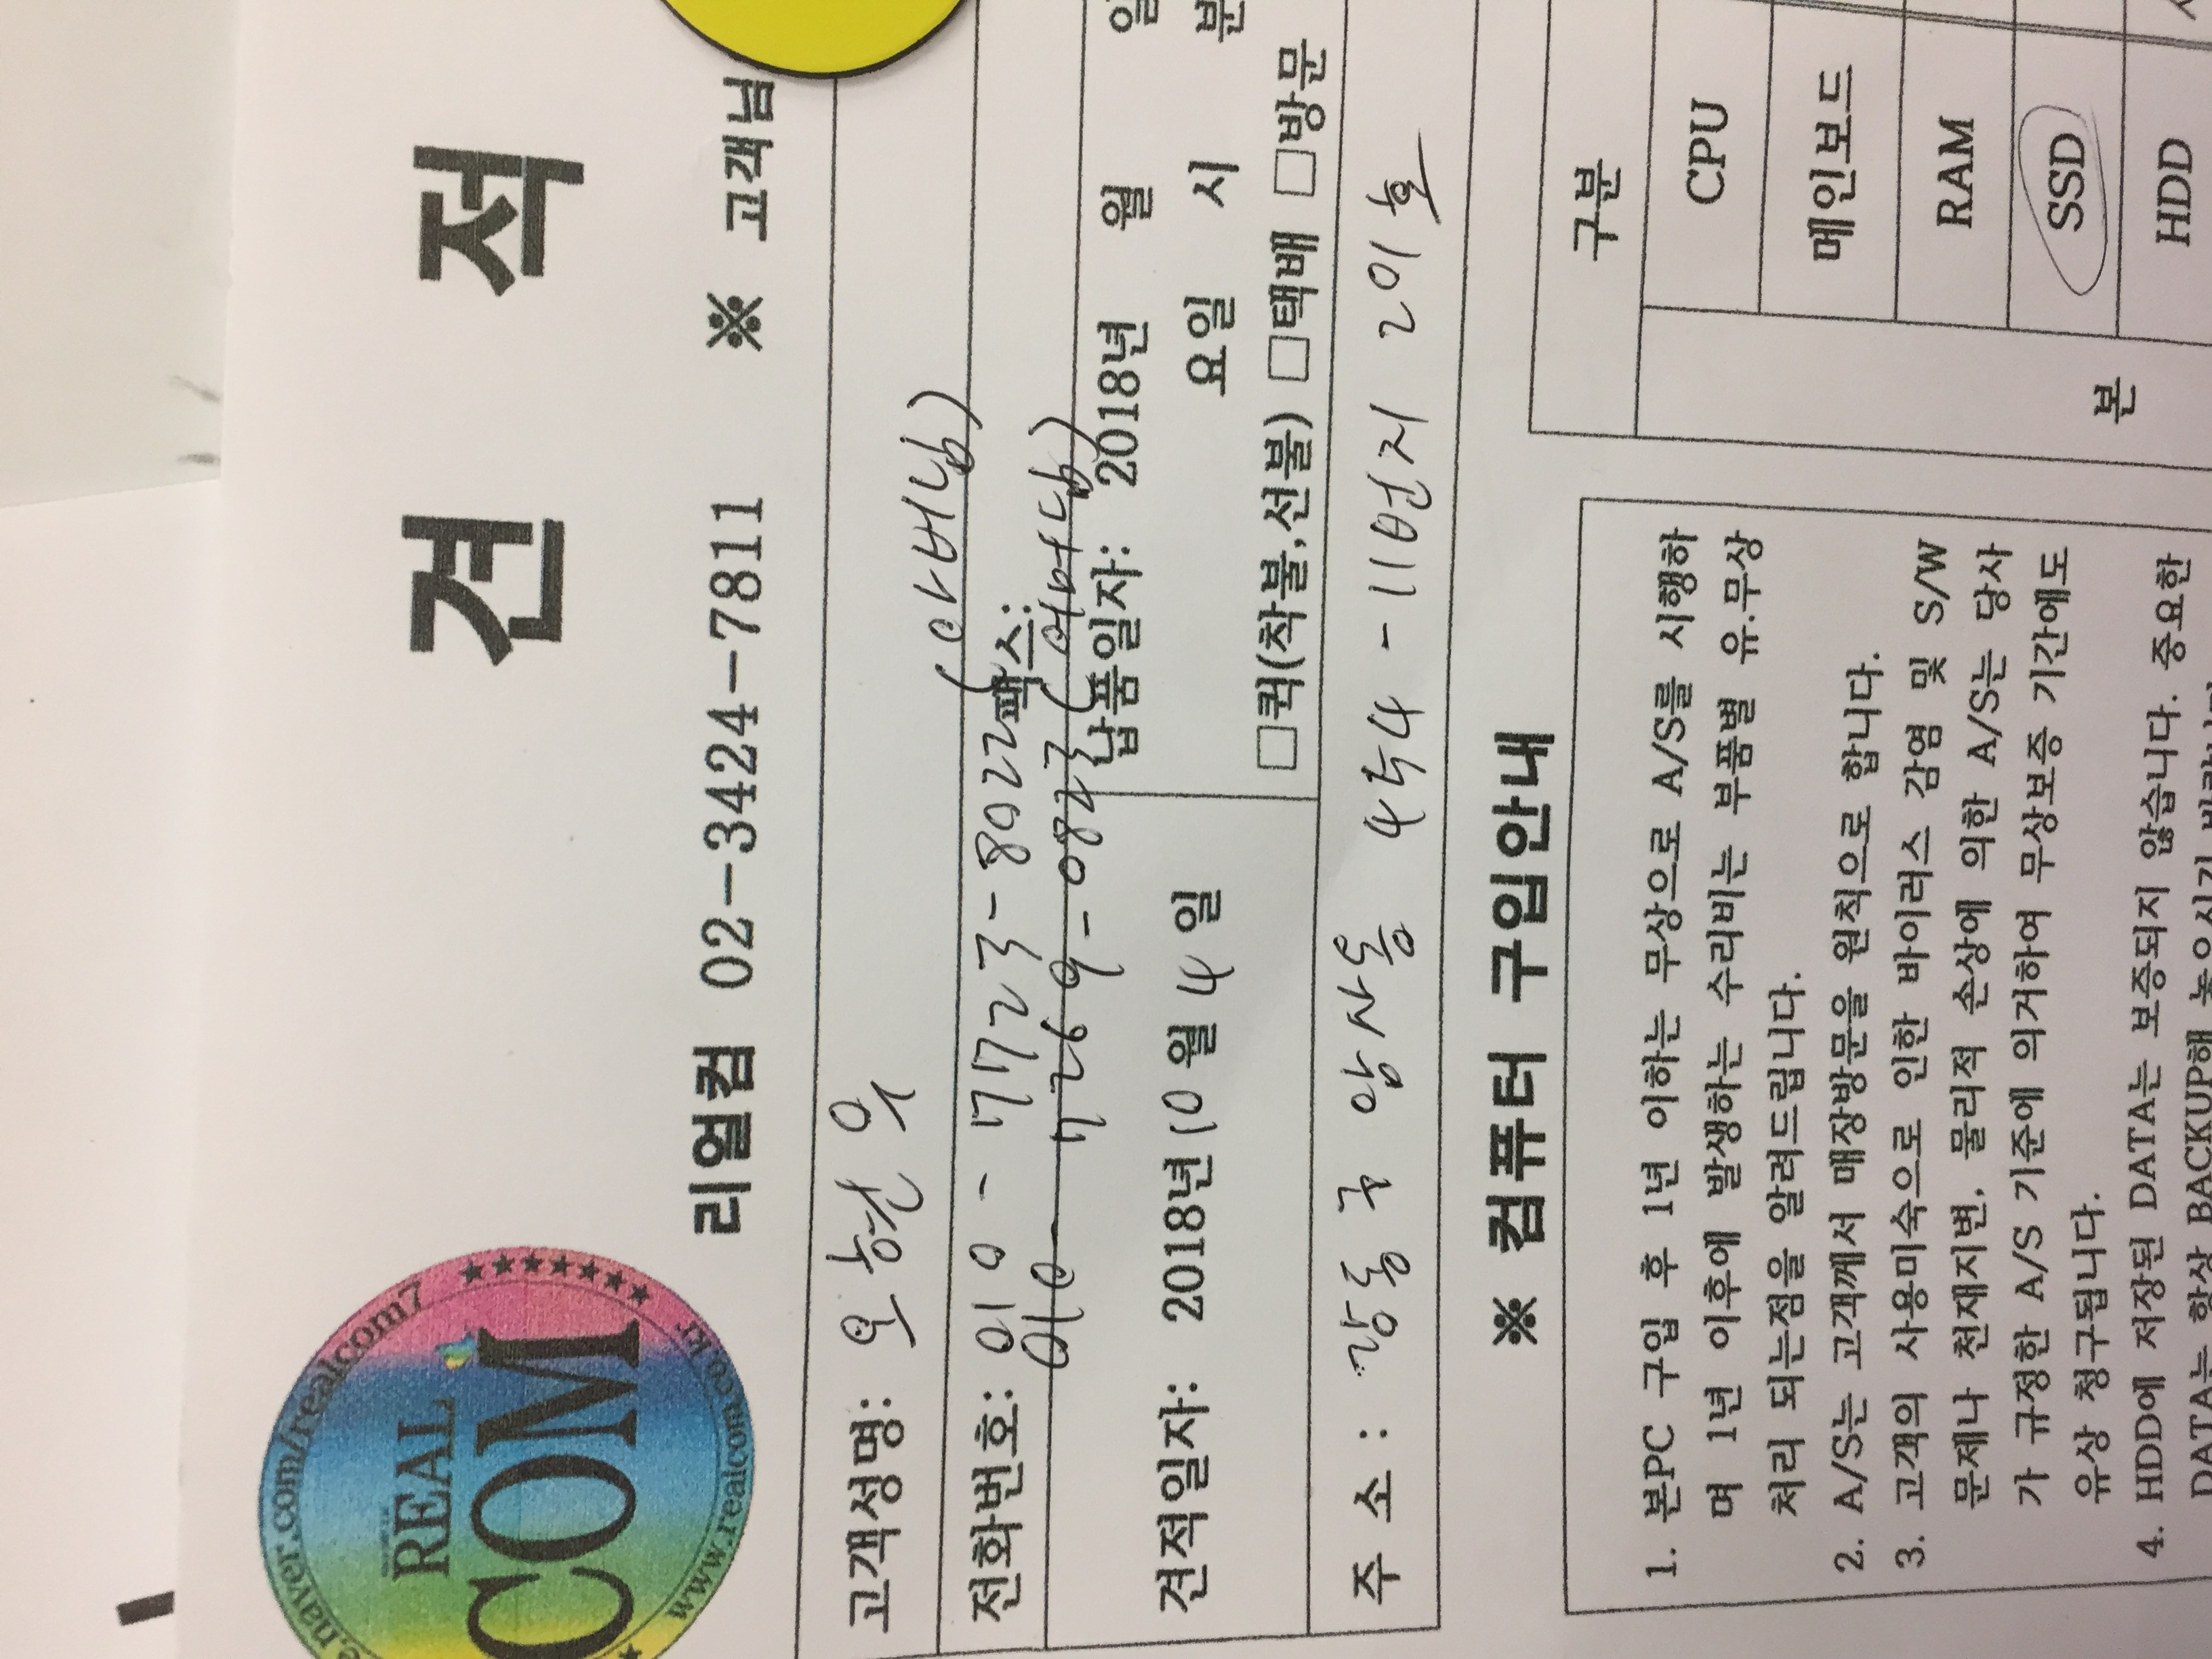 견 적
리얼컴 02-3424-7811 ※ 고객님
.naver.com/realcom7
REAL
COM
www.realcom.co.kr
고객성명: 오 윤
(아버님)
전화번호: 010 - 7723-8022 팩스:
010- 7269-0823 (어머님)
견적일자: 2018년 10월 4일
납품일자: 2018년 월 일
요일 시 분
□퀵(착불,선불) □택배 □방문
주 소 : 강동구 암사동 454-11번지 201호
※ 컴퓨터 구입안내
1. 본PC 구입 후 1년 이하는 무상으로 A/S를 시행하
며 1년 이후에 발생하는 수리비는 부품별 유.무상
처리 되는점을 알려드립니다.
2. A/S는 고객께서 매장방문을 원칙으로 합니다.
3. 고객의 사용미숙으로 인한 바이러스 감염 및 S/W
문제나 천재지변, 물리적 손상에 의한 A/S는 당사
가 규정한 A/S 기준에 의거하여 무상보증 기간에도
유상 청구됩니다.
4. HDD에 저장된 DATA는 보증되지 않습니다. 중요한
DATA는 항상 BACKUP해 놓으시기 바랍니다
구분
CPU
메인보드
RAM
SSD
HDD
본